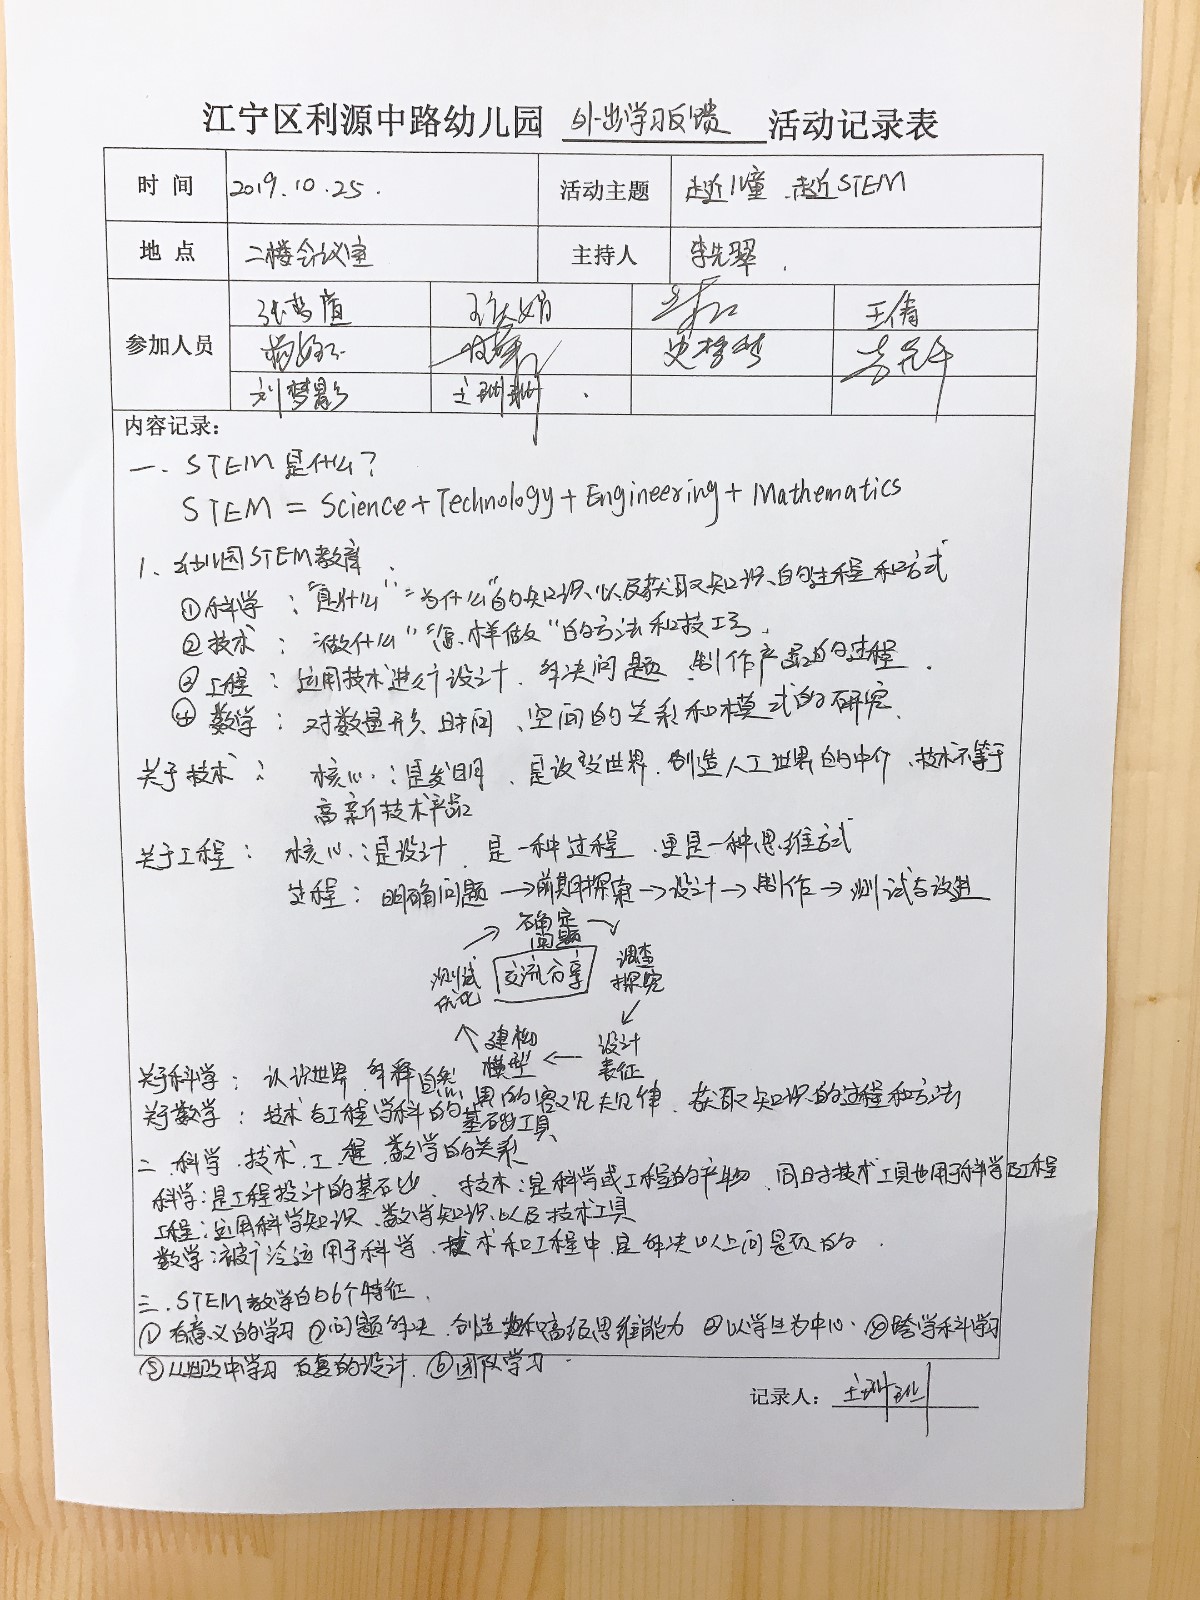 江宁区利源中路幼儿园 外出学习反馈 活动记录表
时间 2019.10.25. 活动主题 走近儿童 走近STEM
地点 二楼会议室 主持人 李先翠
王倩
参加人员
刘梦影 王珊珊
内容记录：
一、STEM是什么？
STEM = Science + Technology + Engineering + Mathematics
1、幼儿园STEM教育
①科学："是什么""为什么"的知识、以及获取知识的过程和方式
②技术："做什么""怎样做"的方法和技巧
③工程：运用技术进行设计、解决问题、制作产品的过程.
④数学：对数量形、时间、空间的关系和模式的研究.
关于技术：核心：是发明、是改变世界、创造人工世界的中介、技术不等于
高新技术产品
关于工程：核心：是设计、是一种过程、更是一种思维方式
过程：明确问题→前期探索→设计→制作→测试与改进
确定问题
调查探究
交流分享
测试优化
设计表征
建构模型
关于科学：认识世界、解释自然界的客观规律、获取知识的过程和方法
关于数学：技术与工程学科的基础工具
二、科学、技术、工程、数学的关系
科学：是工程设计的基石 技术：是科学或工程的产物、同时技术工具也用于科学及工程
工程：运用科学知识、数学知识以及技术工具
数学：被广泛运用于科学、技术和工程中 是解决以上问题的
三、STEM教学的6个特征.
①有意义的学习 ②问题解决、创造和高级思维能力 ③以学生为中心 ④跨学科学习
⑤从中学习 反复的设计. ⑥团队学习
记录人：王珊珊